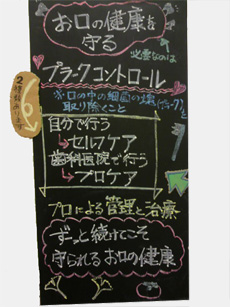 お口の健康を
守る
必要なのは
プラークコントロール
※お口の中の細菌の塊(プラーク)を
取り除くこと
2種類あります
自分で行う
→セルフケア
歯科医院で行う
→プロケア
プロによる管理と治療
ずっと続けてこそ
守られるお口の健康